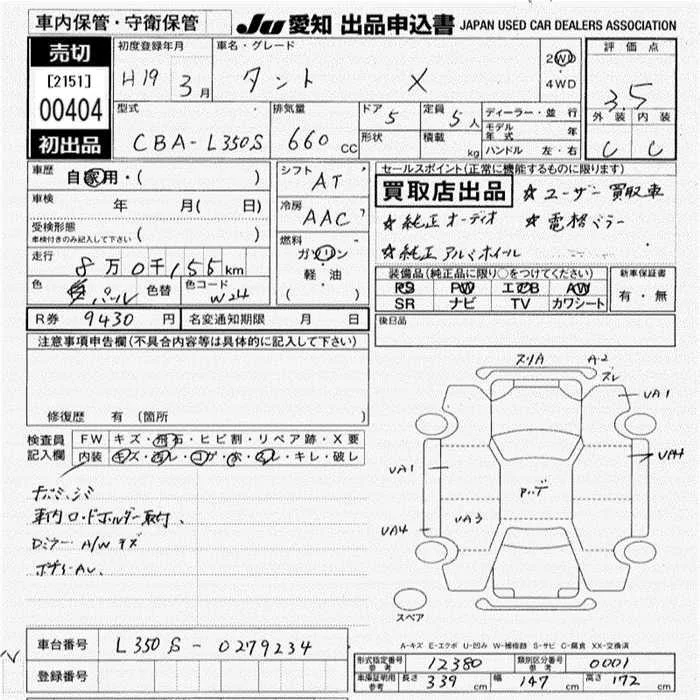 車内保管・守衛保管
JU 愛知 出品申込書 JAPAN USED CAR DEALERS ASSOCIATION
売切
[2151]
00404
初出品
初度登録年月
H19 3月
車名・グレード
タント X
2WD
4WD
評価点
3.5
外装 内装
C C
型式
CBA-L350S
排気量
660 CC
ドア 5
形状
定員 5人
積載 kg
ディーラー・並行
モデル年式 年
ハンドル 左・右
車歴 自家用・( )
車検 年 月( 日)
受検形態
車検付きのみ記入して下さい ( )
走行 8万0千155km
色 パール 色替 色コード W24
シフト AT
冷房 AAC
燃料
ガソリン
軽・油
( )
R券 9430円 名変通知期限 月 日
セールスポイント(正常に機能するものに限ります)
買取店出品 ☆ユーザー買取車
☆純正オーディオ ☆電格ミラー
☆純正アルミホイール
装備品(純正品に限り○をつけてください)
PS PW エアB AW
SR ナビ TV カワシート
新車保証書
有・無
後日品
注意事項申告欄(不具合内容等は具体的に記入して下さい)
修復歴 有(箇所 )
検査員記入欄
FW キズ・飛石・ヒビ割・リペア跡・X要
内装 キズ・汚レ・コゲ・穴・スレ・キレ・破レ
車内ロッドホルダー取付、
Dミラー A/W キズ
ボディAU、
スリA A-2
スレ
UA1
UA4
UA1
UA3
UA4
スペア
A-キズ E-エクボ U-凹み W-補修跡 S-サビ C-腐食 XX-交換済
車台番号 L350S-0279234
登録番号
形式指定番号参考 12380 類別区分番号参考 0001
車庫証明用参考 長さ 339 cm 幅 147 cm 高さ 172 cm